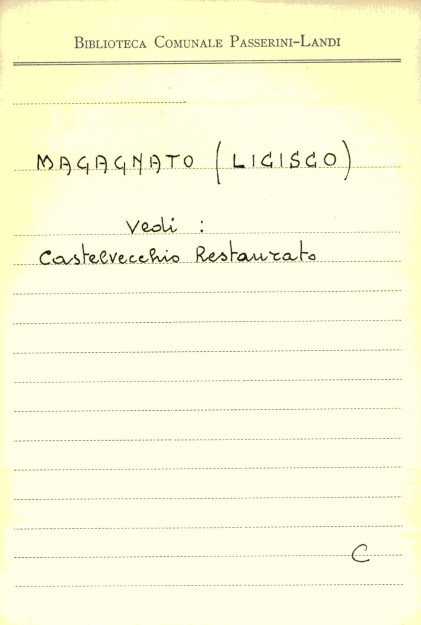 Biblioteca Comunale Passerini-Landi
MAGAGNATO (LIGISCO)
Vedi :
Castelvecchio Restaurato
C